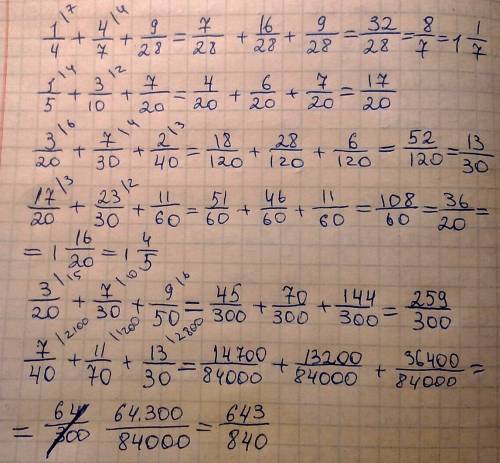 1/4 |7 + 4/7 |4 + 9/28 = 7/28 + 16/28 + 9/28 = 32/28 = 8/7 = 1 1/7
1/5 |4 + 3/10 |2 + 7/20 = 4/20 + 6/20 + 7/20 = 17/20
3/20 |6 + 7/30 |4 + 2/40 |3 = 18/120 + 28/120 + 6/120 = 52/120 = 13/30
17/20 |3 + 23/30 |2 + 11/60 = 51/60 + 46/60 + 11/60 = 108/60 = 36/20 =
= 1 16/20 = 1 4/5
3/20 |15 + 7/30 |10 + 9/50 |6 = 45/300 + 70/300 + 144/300 = 259/300
7/40 |2100 + 11/70 |1200 + 13/30 |2800 = 14700/84000 + 13200/84000 + 36400/84000 =
= 64/300 64.300/84000 = 643/840